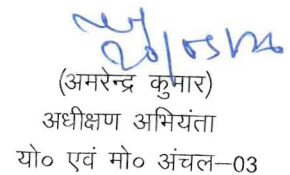 20/05/26
(अमरेन्द्र कुमार)
अधीक्षण अभियंता
यो० एवं मो० अंचल–03